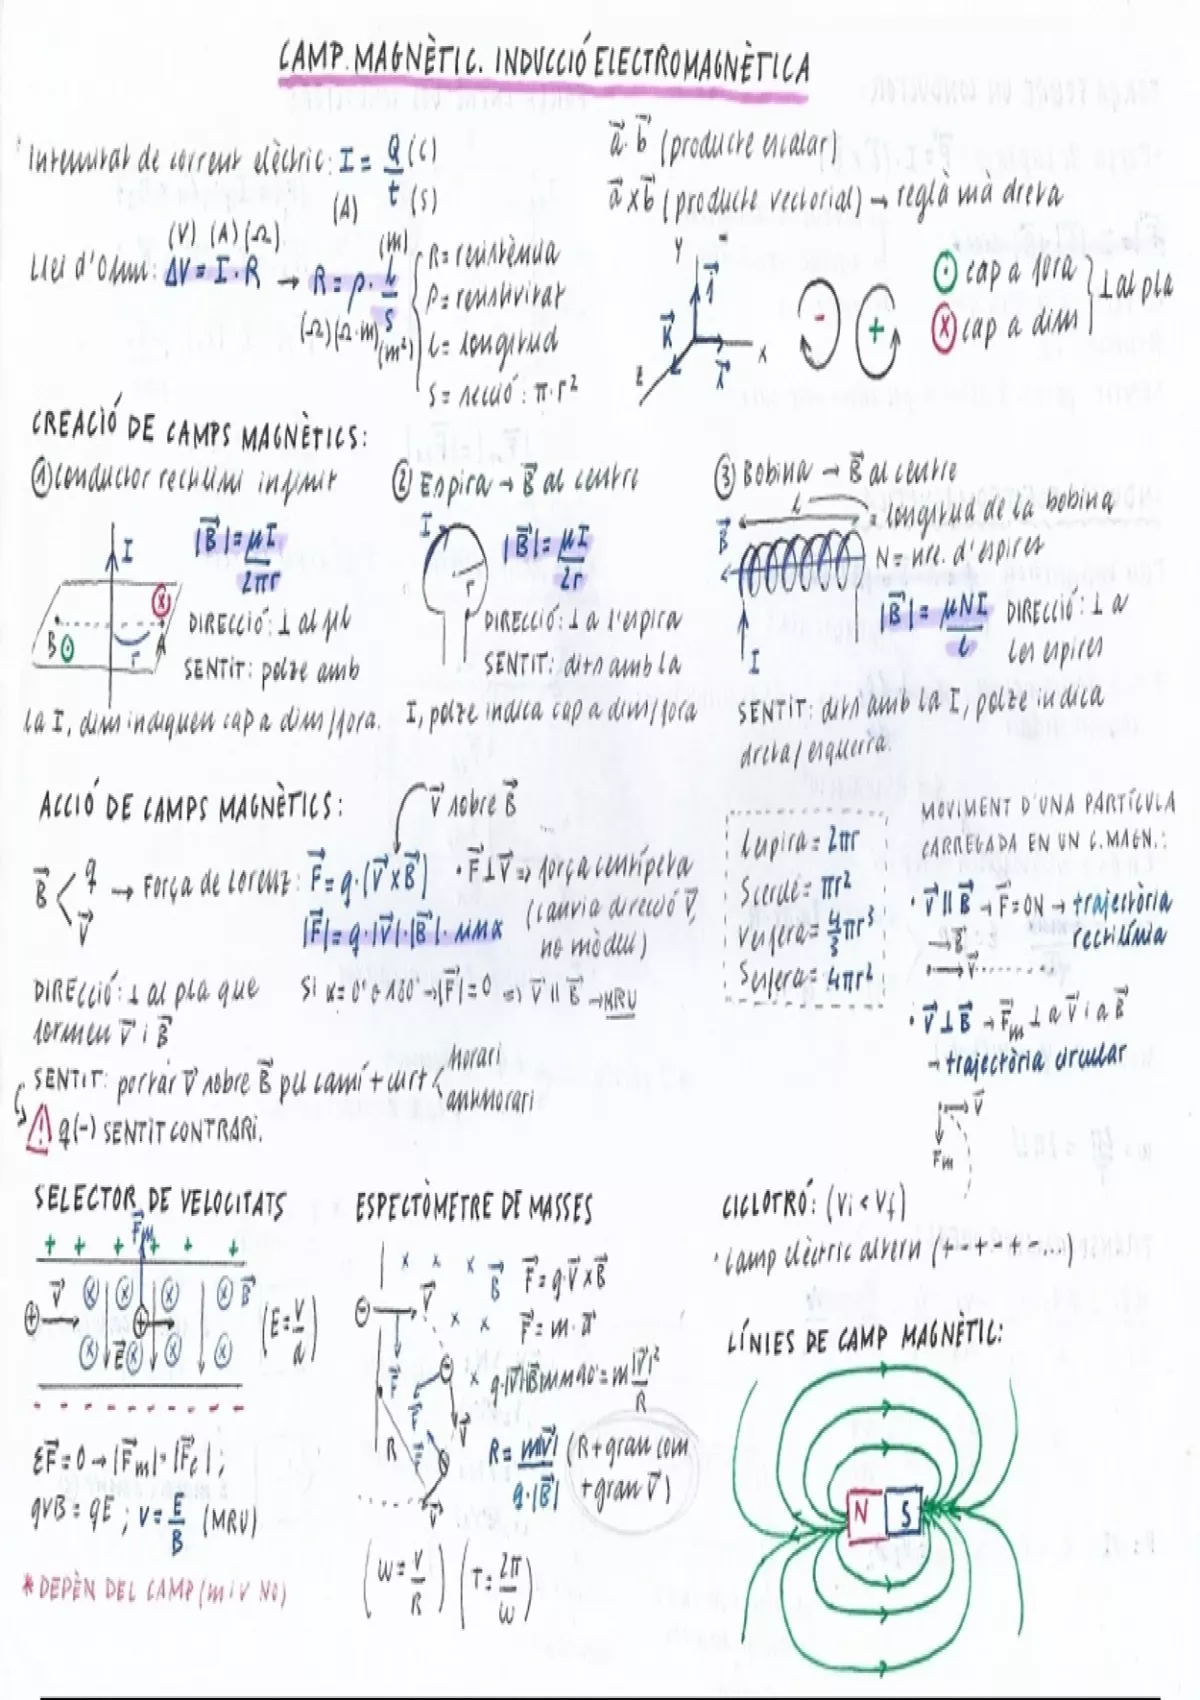 CAMP MAGNÈTIC. INDUCCIÓ ELECTROMAGNÈTICA
Intensitat de corrent elèctric: I = Q (C) / t (s)
(A)
(V) (A) (Ω)
Llei d'Ohm: ΔV = I · R → R = ρ · L / S
(m)
(Ω) (Ω·m) (m²)
R = resistència
ρ = resistivitat
L = longitud
S = secció : π·r²
a⃗ · b⃗ (producte escalar)
a⃗ x b⃗ (producte vectorial) → reglà mà dreta
Y
j⃗
k⃗
i⃗
x
z
- +
⊙ cap a fora
ⓧ cap a dins
⊥ al pla
CREACIÓ DE CAMPS MAGNÈTICS:
① Conductor rectilini infinit
I
|B⃗| = μI / 2πr
B r A
DIRECCIÓ: ⊥ al fil
SENTIT: polze amb
la I, dits indiquen cap a dins/fora.
② Espira → B⃗ al centre
I
r
|B⃗| = μI / 2r
DIRECCIÓ: ⊥ a l'espira
SENTIT: dits amb la
I, polze indica cap a dins/fora
③ Bobina → B⃗ al centre
L = longitud de la bobina
N = nre. d'espires
B⃗
I
|B⃗| = μNI / L
DIRECCIÓ: ⊥ a
les espires
SENTIT: dits amb la I, polze indica
dreta/esquerra.
ACCIÓ DE CAMPS MAGNÈTICS:
v⃗ sobre B⃗
B⃗ < q v⃗ → Força de Lorenz: F⃗ = q·(v⃗ x B⃗)
|F⃗| = q·|v⃗|·|B⃗|· sinα
· F⃗ ⊥ v⃗ ⇒ força centrípeta
(canvia direcció v⃗,
no mòdul)
DIRECCIÓ: ⊥ al pla que
formen v⃗ i B⃗
Si α = 0° o 180° → |F⃗| = 0 ⇒ v⃗ || B⃗ → MRU
SENTIT: portar v⃗ sobre B⃗ pel camí + curt < horari
antihorari
⚠ q(-) SENTIT CONTRARI.
Lespira = 2πr
Scercle = πr²
Vesfera = 4/3 πr³
Sesfera = 4πr²
MOVIMENT D'UNA PARTÍCULA
CARREGADA EN UN C.MAGN.:
· v⃗ || B⃗ → F⃗ = 0N → trajectòria
rectilínia
B⃗
v⃗
· v⃗ ⊥ B⃗ → F⃗m ⊥ a v⃗ i a B⃗
→ trajectòria circular
v⃗
Fm
SELECTOR DE VELOCITATS
F⃗m
+ + + + + +
v⃗ B⃗
E⃗
(E = V/d)
- - - - - - - -
ΣF⃗ = 0 → |F⃗m| = |F⃗e| ;
qvB = qE ; v = E / B (MRU)
* DEPÈN DEL CAMP (m i v NO)
ESPECTÒMETRE DE MASSES
x x x B⃗
v⃗
x x
x
F⃗
F⃗
v⃗
R
F⃗
v⃗
F⃗ = q·v⃗ x B⃗
F⃗ = m·a⃗
q·|v⃗||B⃗| sin90° = m |v⃗|² / R
R = m|v⃗| / q·|B⃗| (R + gran com
+ gran v⃗)
(ω = v / R) (T = 2π / ω)
CICLOTRÓ: (Vi < Vf)
· Camp elèctric altern (+ - + - + - ...)
LÍNIES DE CAMP MAGNÈTIC:
N S